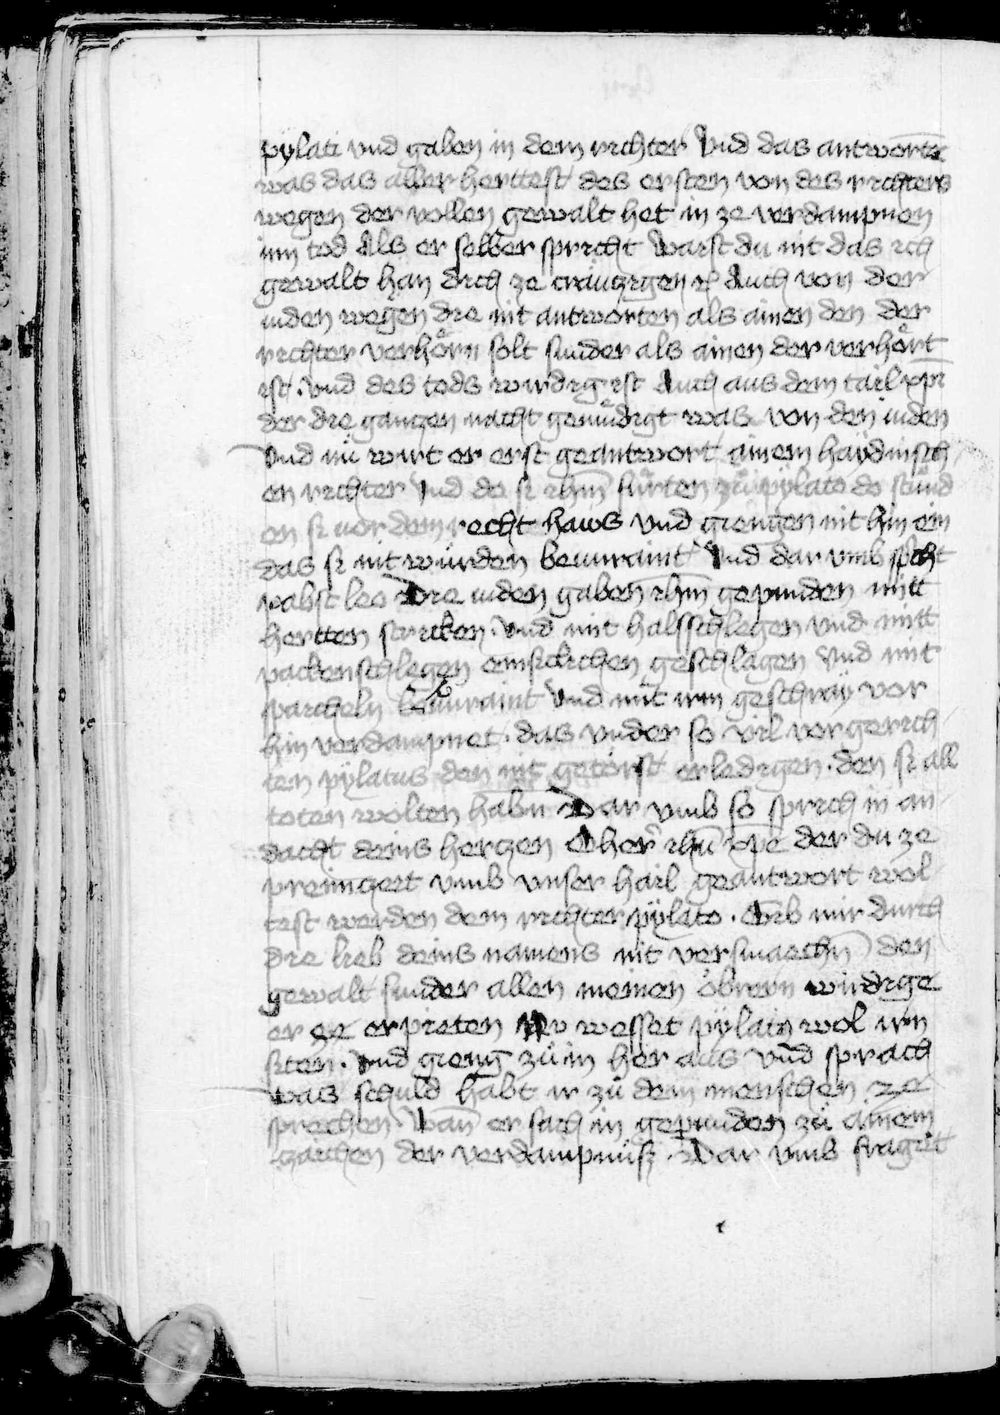 pÿlati vnd gaben in dem richter Vnd das antworten
was das aller herttest des ersten von des richters
wegen der vollen gewalt het in ze verdampnen
inn tod Als er selber spricht Waist du nit das ich
gewalt han dich ze cräutzigen rc Auch von der
iuden wegen die nit antworten als ainen den der
richter verhörn solt sunder als ainen der verhört
ist. vnd des tods wirdig ist Auch aus dem tail xpi
der die ganczen nacht gemüdigt was von den iuden
Vnd nu wirt er erst geantwort ainem haÿdinisch
en richter Vnd do si ihm fürten zu pÿlato do stund
en si vor dem recht haws vnd giengen nit hin ein
das si nit würden bemraint Vnd dar vmb spcht
pabst leo Die iuden gaben ihm gepunden mitt
hertten stricken. vnd mit halsschlegen vnd mitt
packenschlegen emsicklichen geschlagen vnd mit
spaicheln bemraint Vnd mit irm geschraÿ vor
hin verdampnet. das vnder so vil vorgerich
ten pÿlatus den nit getörst erledigen. den si all
toten wolten habn Dar vmb so sprich in an
dacht deins herczen O her ihu xpe der du ze
preimczeit vmb vnser hail geantwort wol
test werden dem richter pÿlato. Gib mir durch
die lieb deins namens nit versmaechn den
gewalt sunder allen meinen obrern wirdige
er ze erpieten Nv wesset pÿlatus wol irn
siten. vnd gieng zu in her aus vnd sprach
was schuld habt ir zu dem menschen ze
sprechen. Wan er sach in gepunden zu ainem
zaichen der verdampnüsz. Dar vmb fragett